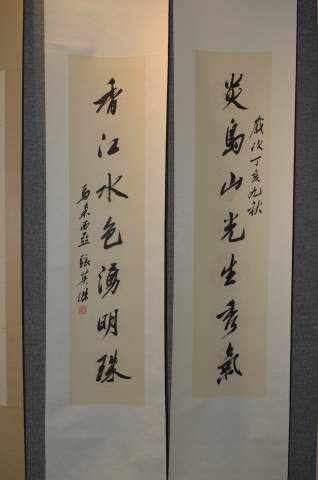 炎島山光生秀氣
歲次丁亥九秋
香江水色湧明珠
馬來西亞 張英傑